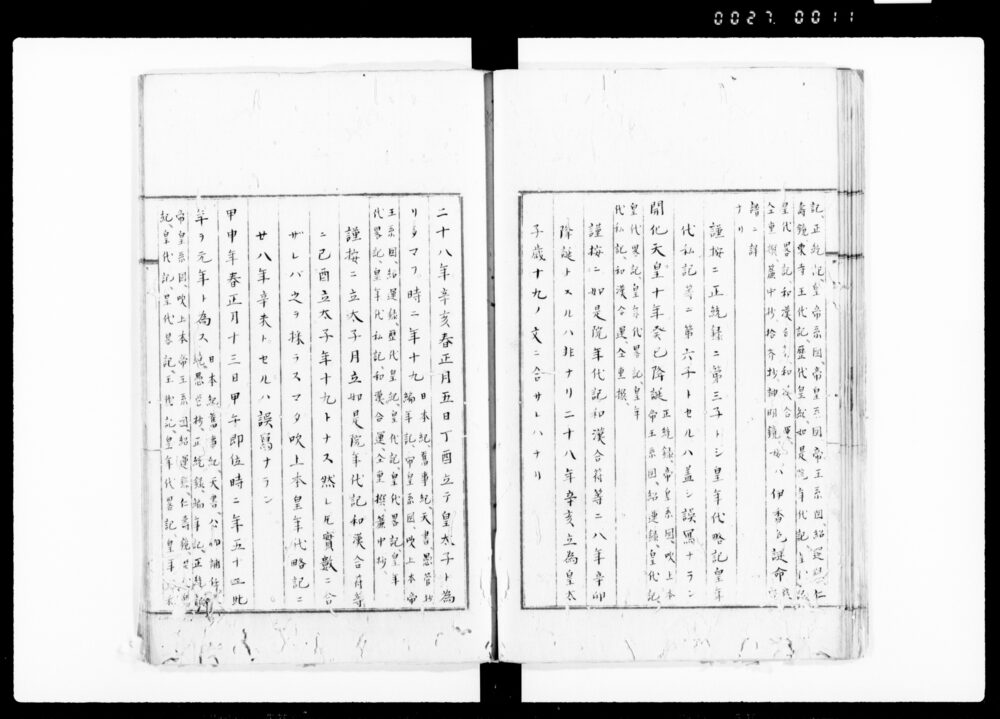 0027.0011
記、正統記、皇帝系図、帝皇系図、帝王系図、紹運録、仁
寿鏡、東寺王代記、歴代皇紀、如是院年代記、
皇代畧記、和漢合運、
全重撰、簾中抄、拾芥抄、神明鏡、母ハ伊香色謎命
譜ニ詳
ナリ
謹按ニ正統録ニ第三子トシ皇年代略記皇年
代私記等ニ第六子トセルハ蓋シ誤写ナラン
開化天皇十年癸巳降誕正統録、帝皇系図、吹上本
帝王系図、紹運録、皇代記、
皇代畧記、皇年代畧記、皇年
代私記、和漢合運、全重撰、
謹按ニ如是院年代記和漢合符等ニ八年辛卯
降誕トスルハ非ナリ二十八年辛亥立為皇太
子歳十九ノ文ニ合サレハナリ
二十八年辛亥春正月五日丁酉立テ皇太子ト為
リタマフ時ニ年十九日本紀、旧事紀、天書、愚管抄
編年記、帝皇系図、吹上本帝
王系図、紹運録、歴代皇紀、皇代記、皇代畧記、皇年
代畧記、皇年代私記、和漢合運、全重撰、簾中抄、
謹按ニ立太子月立如是院年代記和漢合符等
ニ己酉立太子年十九トナス然レ圧實數ニ合
ザレバ之ヲ採ラスマタ吹上本皇年代略記ニ
廿八年辛未トセルハ誤寫ナラン
甲申年春正月十三日甲午即位時ニ年五十此
年ヲ元年ト為ス日本紀、舊事紀、天書、
愚管抄、正統録、編年記、正統
帝皇系図、吹上本帝王系図、紹運録、仁寿鏡、
紀、皇代記、皇代畧記、王代記、皇年代畧記、皇年